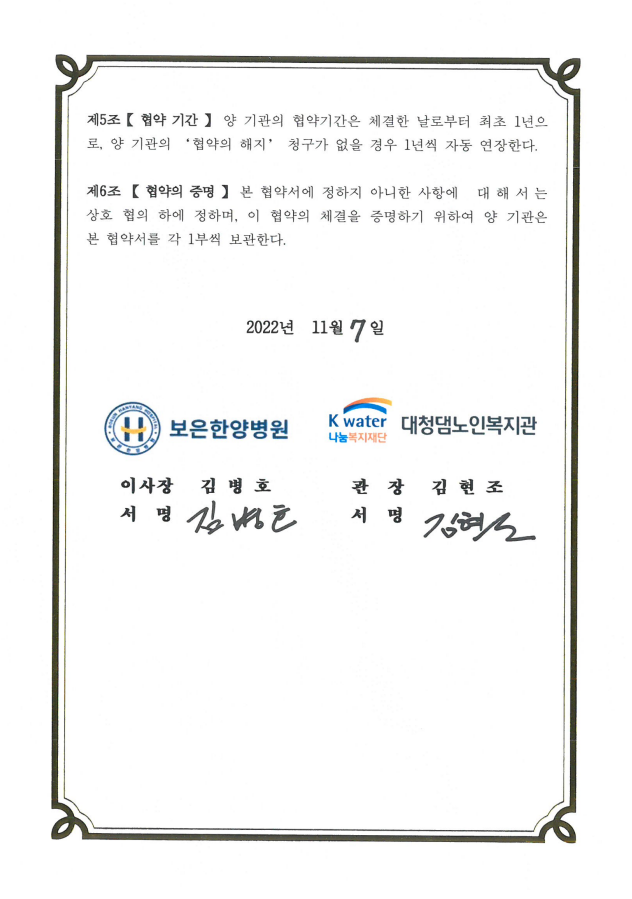 제5조【 협약 기간 】 양 기관의 협약기간은 체결한 날로부터 최초 1년으
로, 양 기관의 ‘협약의 해지’ 청구가 없을 경우 1년씩 자동 연장한다.
제6조 【 협약의 증명 】 본 협약서에 정하지 아니한 사항에 대 해 서 는
상호 협의 하에 정하며, 이 협약의 체결을 증명하기 위하여 양 기관은
본 협약서를 각 1부씩 보관한다.
2022년 11월 7일
BOEUN HANYANG HOSPITAL
보은한양병원
보은한양병원
K water
나눔복지재단
대청댐노인복지관
이사장 김 병 호
서 명 김병호
관 장 김 현 조
서 명 김현조